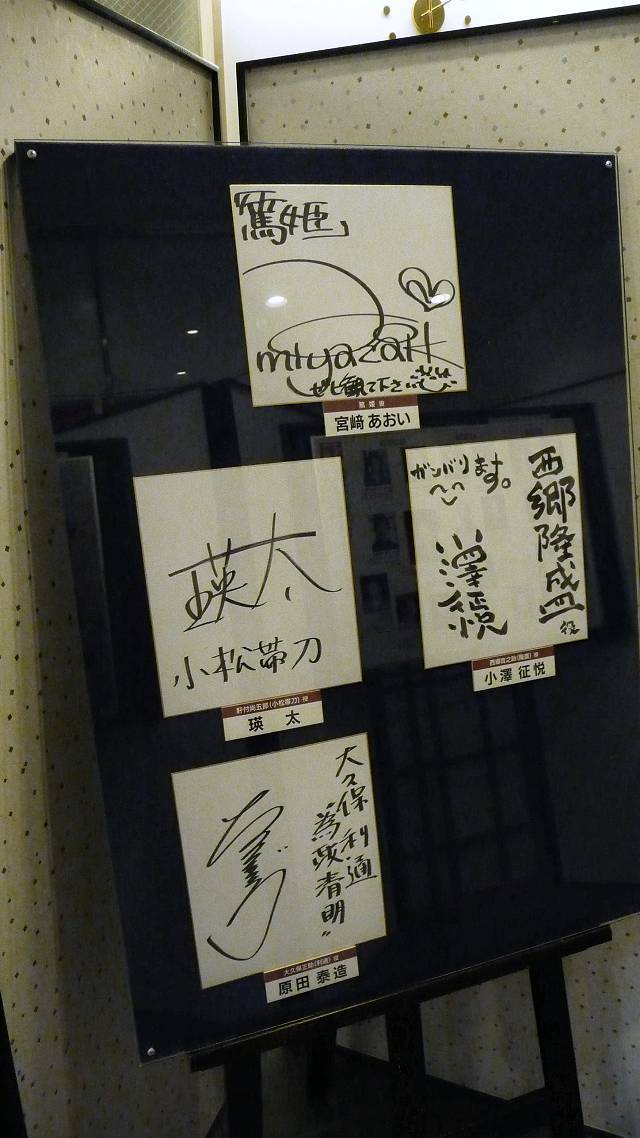 「篤姫」
miyazaki
ぜひ観て下さい
篤姫 役
宮﨑 あおい
瑛太
小松帯刀
肝付尚五郎(小松帯刀) 役
瑛 太
西郷隆盛
役
ガンバリます。
小澤征悦
西郷吉之助(隆盛) 役
小澤 征悦
大久保利通
為政清明
大久保正助(利通) 役
原田 泰造